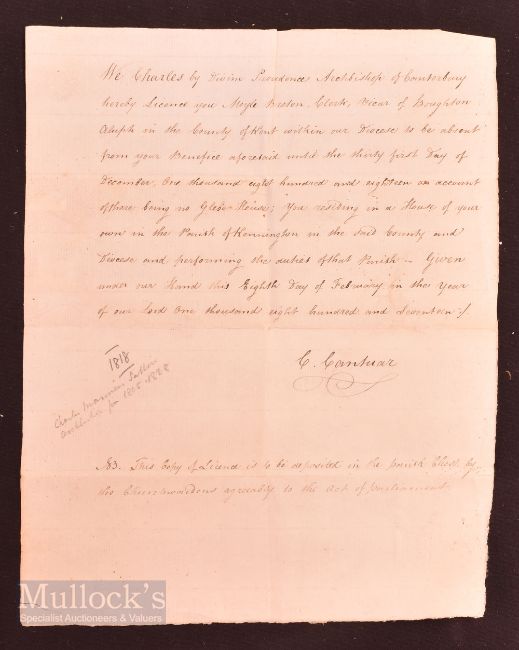 We Charles by Divine Providence Archbishop of Canterbury
hereby Licence you Moyle Breton, Clerk, Vicar of Boughton
Aluph in the County of Kent within our Diocese to be absent
from your Benefice aforesaid until the thirty first Day of
December, One thousand eight hundred and eighteen on account
of there being no Glebe House; You residing in a House of your
own in the Parish of Kennington in the said County and
Diocese and performing the duties of that Parish – Given
under our Hand this Eighth Day of February in the Year
of our Lord One thousand eight hundred and Seventeen
C. Cantuar
1818
Charles Manners Sutton
archbishop 1805-1828
NB. This Copy of Licence is to be deposited in the parish Chest by
the Churchwardens agreeably to the Act of parliament
Mullock's
Specialist Auctioneers & Valuers